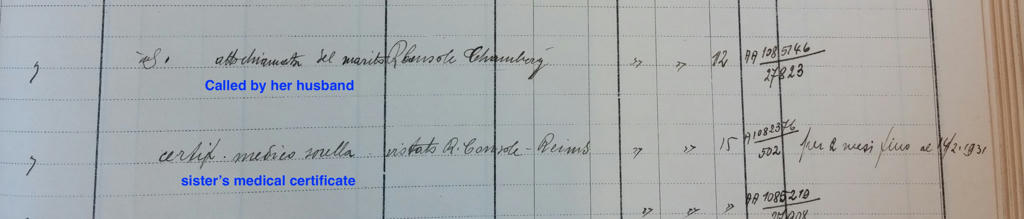 id. atto chiamata del marito R Console Chambery " " 12 AA 1085746
27823
Called by her husband
certif. medico sorella vistato R. Console - Reims " " 15 A 1082376 per 2 mesi fino al 14/2-1931
502
sister's medical certificate
" " " AA 1085219